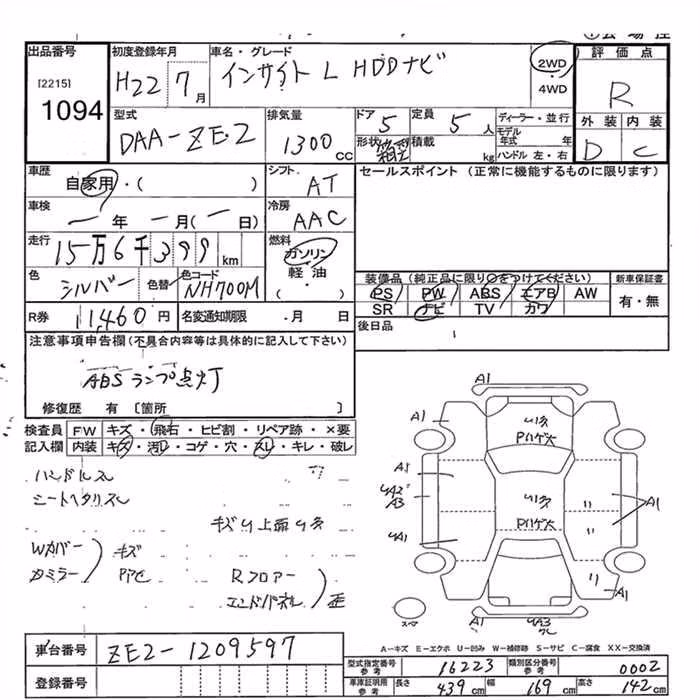 出品番号
[2215]
1094
初度登録年月
H22 7月
車名・グレード
インサイト L HDDナビ
2WD
・
4WD
評価点
R
外装 内装
D C
型式
DAA-ZE2
排気量
1300cc
ドア
5
定員
5人
形状
積載
kg
ディーラー・並行
モデル年式 年
ハンドル 左・右
車歴
自家用・( )
シフト
AT
車検
一年 一月(一日)
冷房
AAC
走行
15万6千399km
燃料
ガソリン
軽油
( )
色
シルバー
色替
色コード
NH700M
R券
11460円
名変通知期限 ・月 日
セールスポイント (正常に機能するものに限ります)
装備品 (純正品に限り○をつけてください)
PS PW ABS エアB AW
SR ナビ TV カワ
新車保証書
有・無
後日品
注意事項申告欄(不具合内容等は具体的に記入して下さい)
ABSランプ点灯
修復歴 有 〔箇所 〕
検査員 FW キズ・飛石・ヒビ割・リペア跡・×要
記入欄 内装 キズ・汚レ・コゲ・穴・スレ・キレ・破レ
ハンドルスレ
シートヘタリスレ
キズ
Wカバー
カミラー
キズ
Rフロアー
エンドパネル
歪
A1
A1
A1
UA2
A3
UA1
A1
A1
UA3
スペア
車台番号
ZE2-1209597
登録番号
A-キズ E-エクボ U-凹み W-補修跡 S-サビ C-腐食 XX-交換済
型式指定番号
参考
16223
類別区分番号
参考
0002
車庫証明用
参考
長さ 439cm 幅 119cm 高さ 142cm